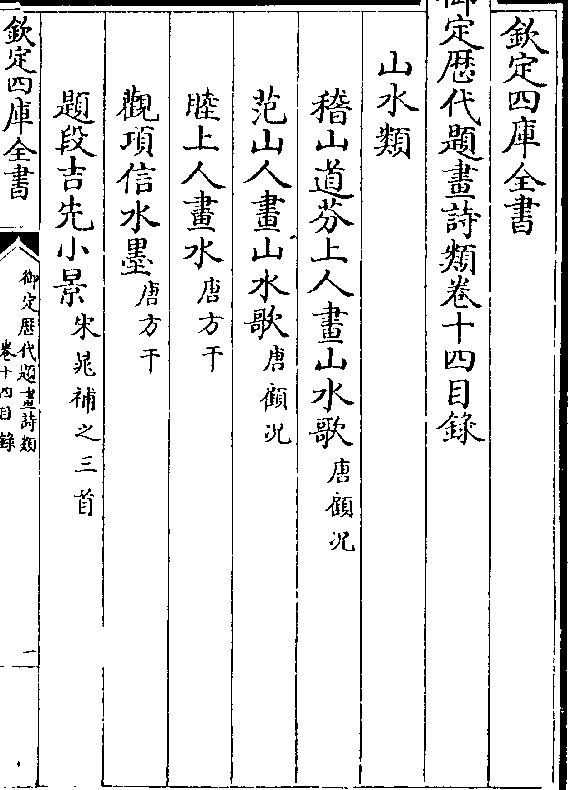 欽定四庫全書
御定歴代題畫詩類卷十四目録
山水類
稽山道芬上人畫山水歌唐顧况
范山人畫山水歌唐顧况
睦上人畫水唐方干
觀項信水墨唐方干
題段吉先小景宋晁補之三首
欽定四庫全書
御定歴代題畫詩類
卷十四目録
一